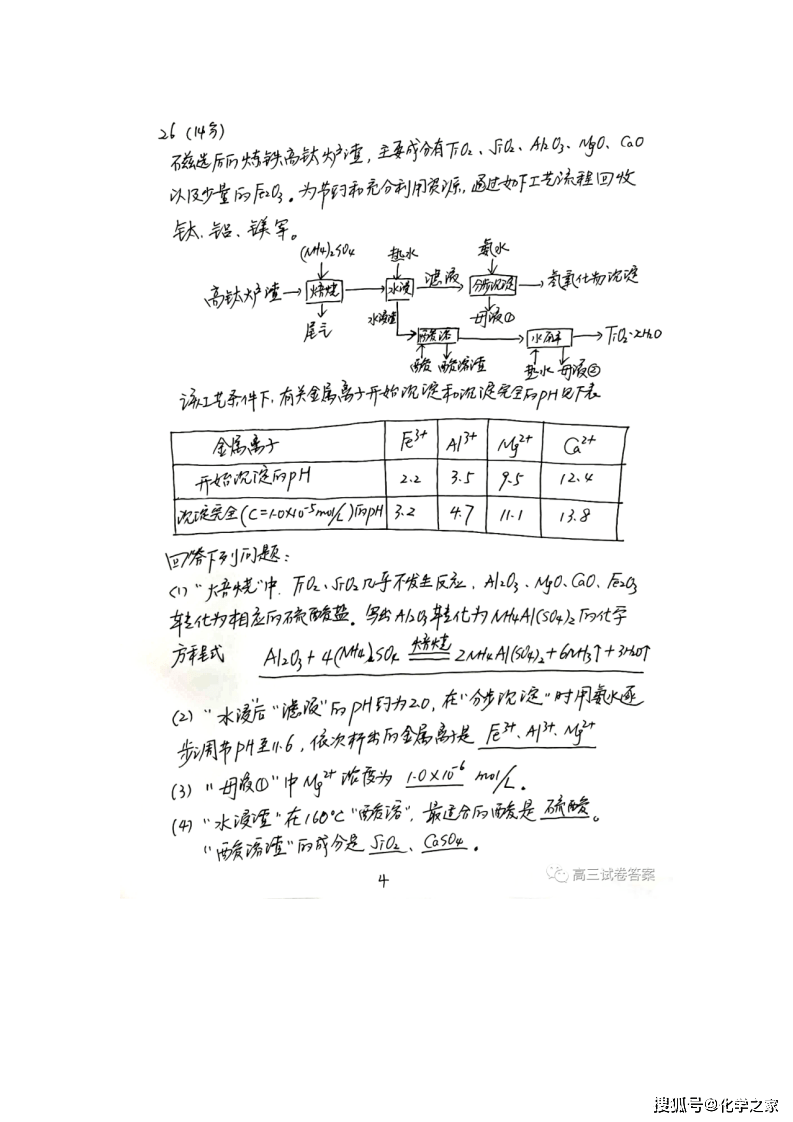 26 (14分)
不磁选后的炼铁高钛炉渣，主要成分有TiO₂、SiO₂、Al₂O₃、MgO、CaO
以及少量的Fe₂O₃。为节约和充分利用资源，通过如下工艺流程回收
钛、铝、镁等。
(NH4)₂SO4 热水 氨水
高钛炉渣 → 焙烧 → 水浸 滤液 → 分步沉淀 → 氢氧化物沉淀
尾气 水浸渣 母液①
酸溶 → 水解 → TiO₂·xH₂O
酸 酸溶渣 热水 母液②
该工艺条件下，有关金属离子开始沉淀和沉淀完全的pH见下表
金属离子 Fe³⁺ Al³⁺ Mg²⁺ Ca²⁺
开始沉淀的pH 2.2 3.5 9.5 12.4
沉淀完全(C=1.0×10⁻⁵mol/L)的pH 3.2 4.7 11.1 13.8
回答下列问题：
(1) "焙烧"中，TiO₂、SiO₂几乎不发生反应，Al₂O₃、MgO、CaO、Fe₂O₃
转化为相应的硫酸盐。写出Al₂O₃转化为NH4Al(SO4)₂的化学
方程式 Al₂O₃+4(NH4)₂SO4 焙烧 2NH4Al(SO4)₂+6NH₃↑+3H₂O↑
(2) "水浸"后"滤液"的pH约为2.0，在"分步沉淀"时用氨水逐
步调节pH至11.6，依次析出的金属离子是 Fe³⁺、Al³⁺、Mg²⁺
(3) "母液①"中Mg²⁺浓度为 1.0×10⁻⁶ mol/L。
(4) "水浸渣"在160℃"酸溶"，最适合的酸是 硫酸。
"酸溶渣"的成分是 SiO₂、CaSO4。
4
高三试卷答案
搜狐号@化学之家